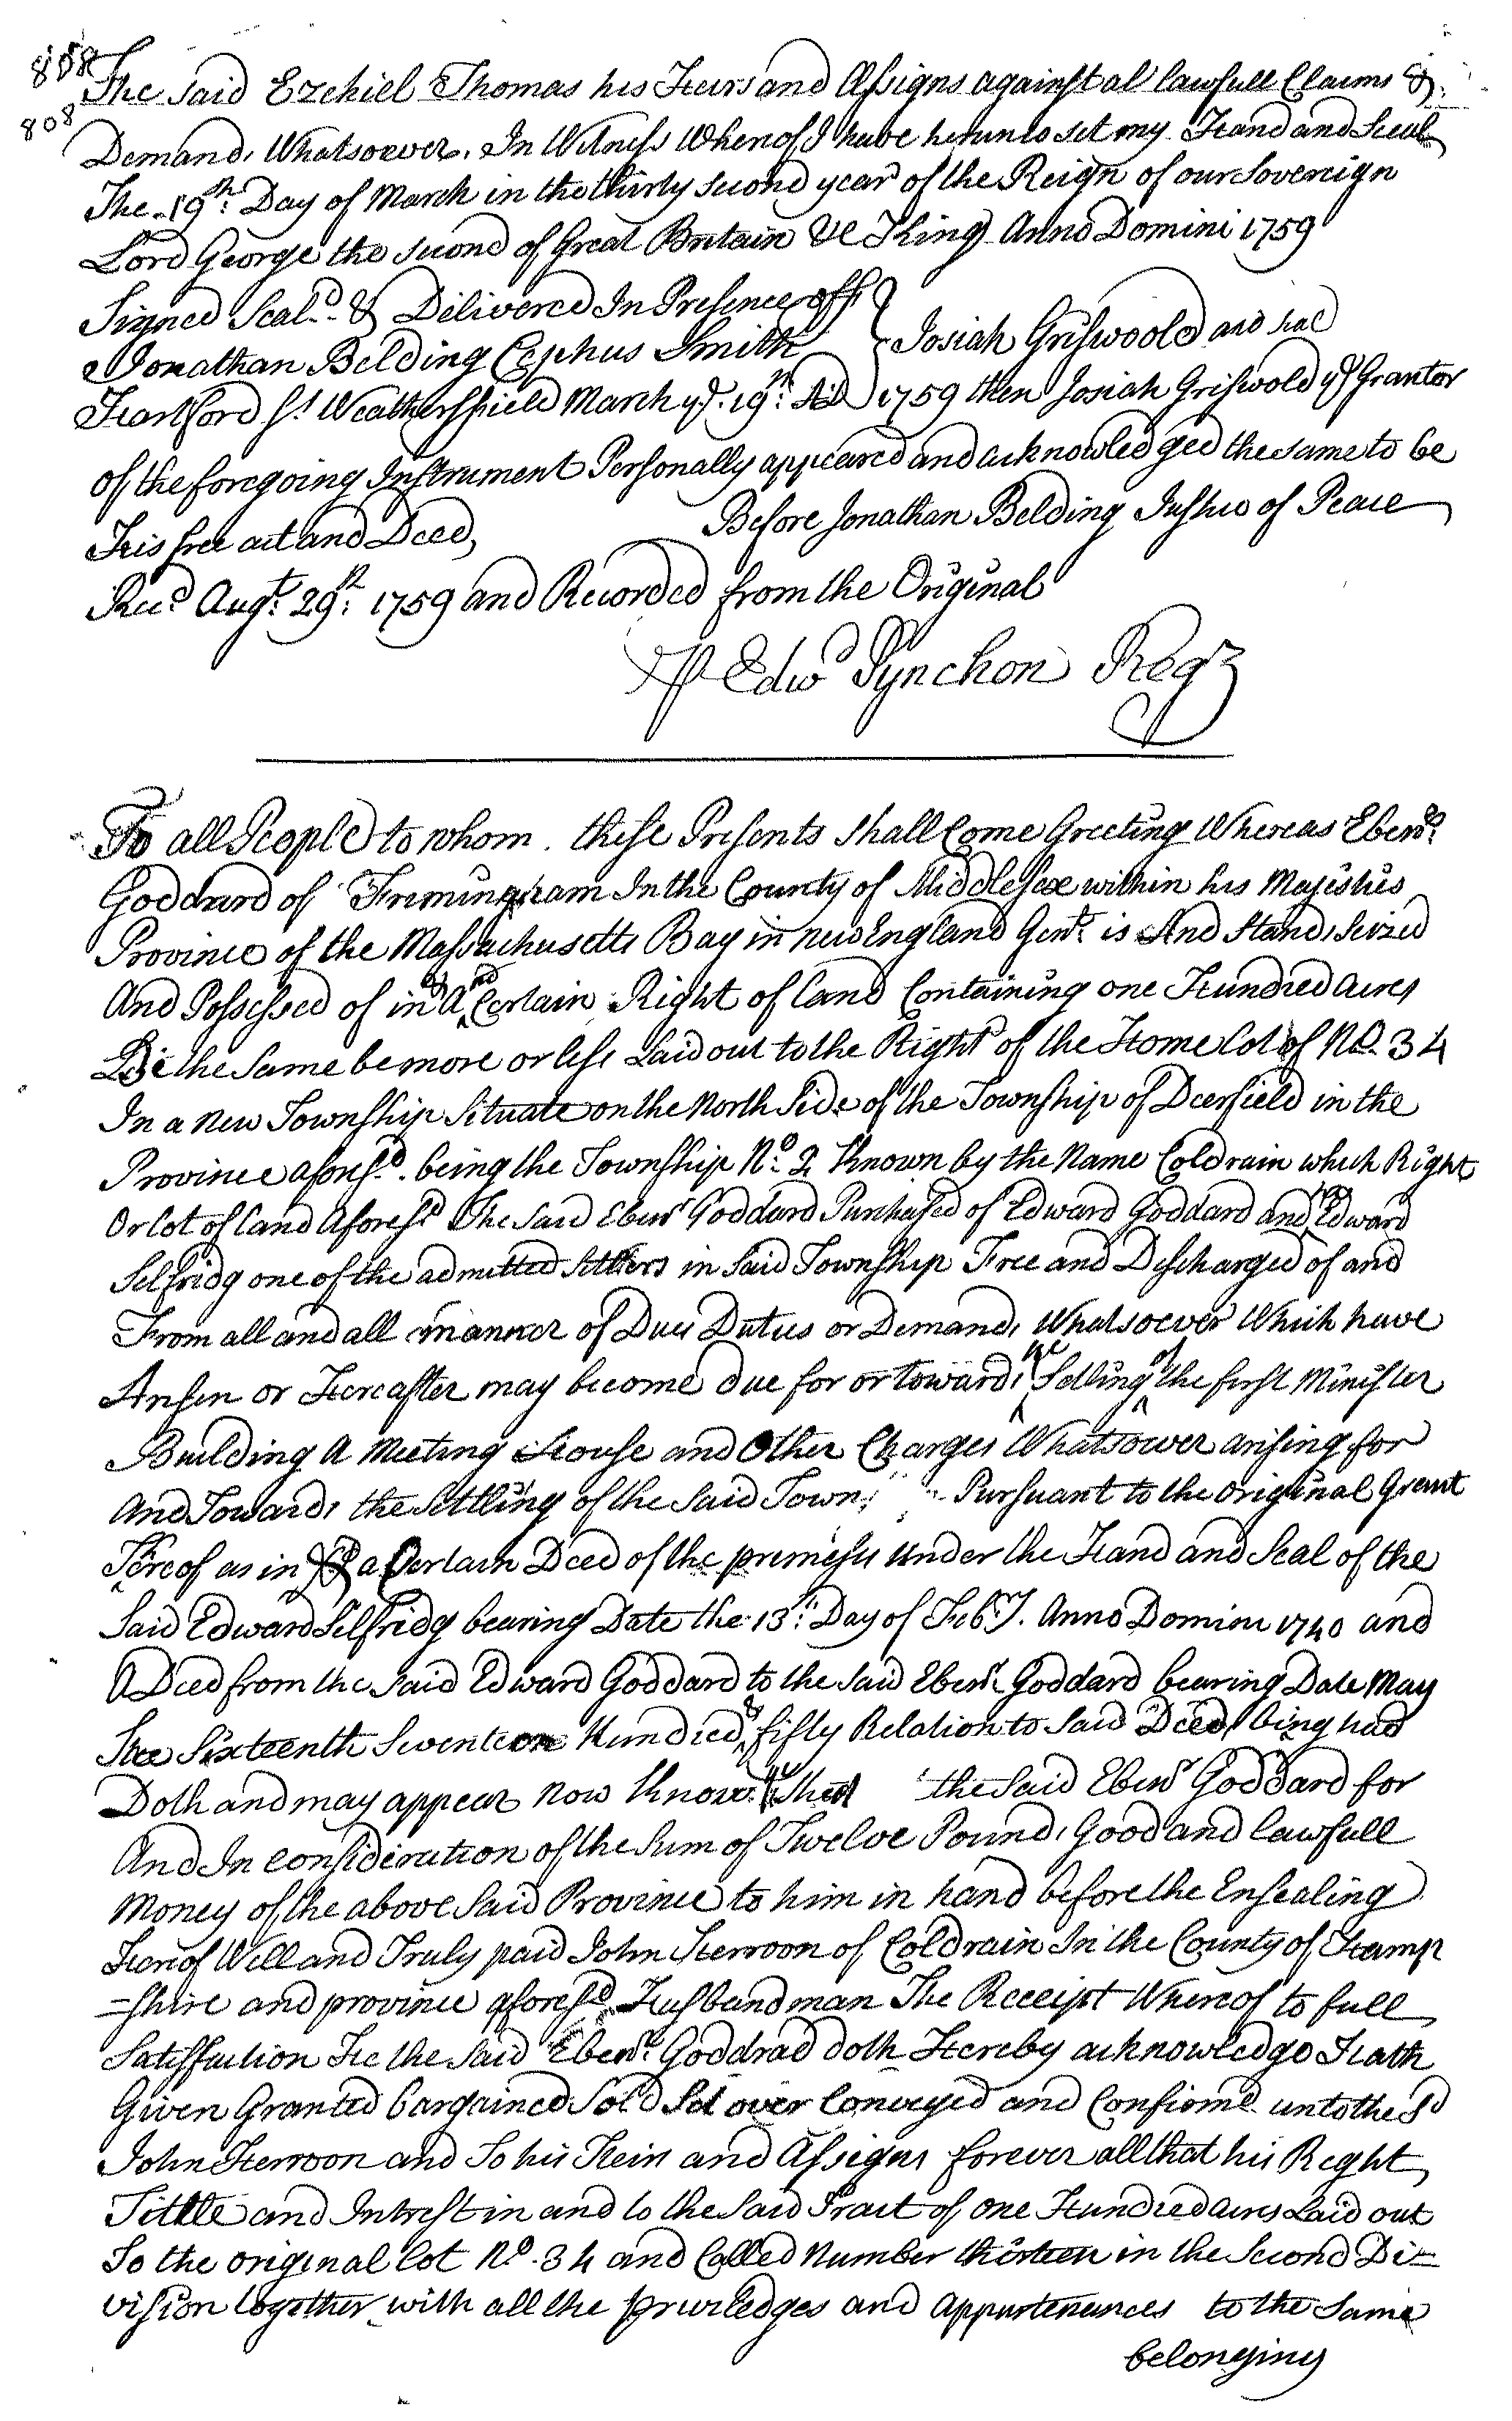 808
808
The said Ezekiel Thomas his Heirs and Assigns against al lawfull Claims &
Demands Whatsoever. In Witness Whereof I have hereunto set my Hand and Seal
The 19th. Day of March in the thirty second year of the Reign of our Sovereign
Lord George the second of Great Britain &c King Anno Domini 1759
Signed Seald. & Delivered In Presence off
Jonathan Belding Cephus Smith } Josiah Griswoold and seal
Hartford Ss Weathersfield March ye. 19th. AD 1759 then Josiah Griswold ye Grantor
of the foregoing Instrument Personally appeared and acknowledged the same to be
His free act and Deed, Before Jonathan Belding Justice of Peace
Recd. Augt. 29th. 1759 and Recorded from the Original
P Edwd Pynchon Regr
To all People to whom these Presents Shall Come Greeting Whereas Ebenr.
Goddard of Framingham In the County of Middlesex within his Majesties
Province of the Massachusetts Bay in new England Gent. is And Stands Seized
And Possessed of in & A Certain Right of Land Containing one Hundred acres
Be the Same be more or less Laid out to the Right of the Home Lot of No. 34
In a new Township Situate on the North Side of the Township of Deerfield in the
Province aforesd. being the Township No. 2 Known by the Name Coldrain which Right
Or Lot of Land Aforesd The Said Ebenr Goddard Purchased of Edward Goddard and Edward
Selfridg one of the admitted Settlers in Said Township Free and Discharged of and
From all and all manner of Dues Duties or Demands Whatsoever Which have
Arisen or Hereafter may become due for or towards ye Setling of the first Minister
Building A Meeting House and Other Charges Whatsoever arising for
And Towards the Settling of the Said Town Pursuant to the original Grant
Hereof as in a Certain Deed of the premises under the Hand and Seal of the
Said Edward Selfridg bearing Date the 13th. Day of Feby. Anno Domini 1740 and
A Deed from the Said Edward Goddard to the Said Ebenr. Goddard bearing Date May
The Sixteenth Seventeen Hundred & fifty Relation to Said Deeds being had
Doth and may appear Now Know ye that the Said Ebenr Goddard for
And In consideration of the Sum of Twelve Pounds Good and Lawfull
Money of the above Said Province to him in hand before the Ensealing
Hereof Well and Truly paid John Herroon of Coldrain In the County of Hamp
=shire and province aforesd. Husbandman The Receipt Whereof to full
Satisfaction He the Said Ebenr. Goddrad doth Hereby acknowledge Hath
Given Granted bargained Sold Set over Conveyed and Confirmd. unto the sd
John Herroon and To his Heirs and Assigns forever all that his Right
Tittle and Intrest in and to the Said Tract of one Hundred acres Laid out
To the original Lot No. 34 and Called Number thirteen in the Second Di=
vision together with all the priviledges and appurtenances to the Same
belonging